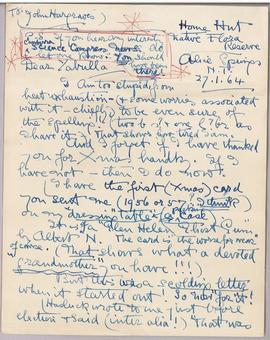 To: John Hargraves)
Home Hut
Native Flora
Reserve
Alice Springs
N.T.
27.1.64
if you hear any interesting
Science Congress do
let me know. You should
there!
Dear Yabulla
I am too stupid, from
heat exhaustion (& some worries associated
with it – chiefly) to be even sure of
the spelling: two b's or one as
I have it? That shows how tired I am.
And I forget if I have thanked
you for Xmas hanks. If I
have not – then I do now.
I have the first (Xmas) card
you sent one (1956 or 57, I think)
on my dressing table
It is a "Glen Helen, Ghost Gum"
by Albert N. The card is the worse for wear
of course. (That shows what a devoted
"grandmother" you have!!!)
But this was a scolding letter
when it started out! So now for it!
(Hasluck wrote to me just before
election & said (inter alia!) That was